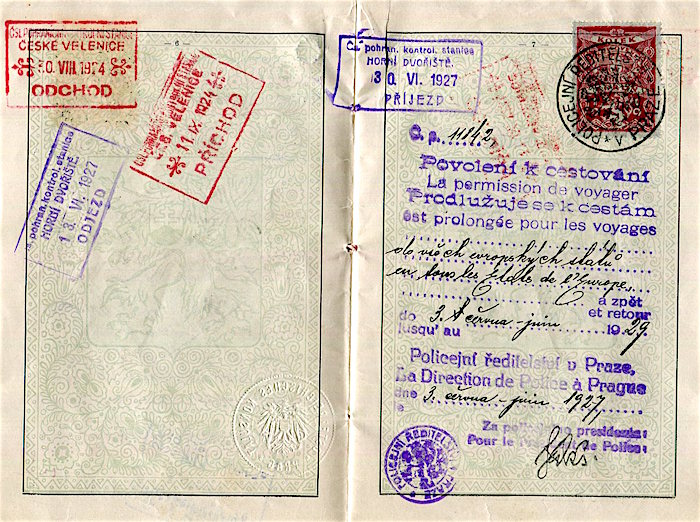 - 6 -
ČESKÉ VELENICE
30. VIII. 1924
ODCHOD
VELENICE
11. IX. 1924
PŘÍCHOD
Čs. pohran. kontrol. stanice
HORNÍ DVOŘIŠTĚ.
13. VI. 1927
ODJEZD
Čs. pohran. kontrol. stanice
HORNÍ DVOŘIŠTĚ.
30. VI. 1927
PŘÍJEZD
7
POLICEJNÍ ŘEDITELSTVÍ V PRAZE
Č. p.
Povolení k cestování
La permission de voyager
Prodlužuje se k cestám
est prolongée pour les voyages
do všech evropských států
en tous les États de l'Europe,
a zpět
et retour
do 3. června - juin 1929.
jusqu' au
Policejní ředitelství v Praze,
La Direction de Police à Prague
dne 3. června - juin 1927
le
Za policejního presidenta:
Pour le Président de Police:
POLICEJNÍ ŘEDITELSTVÍ V PRAZE